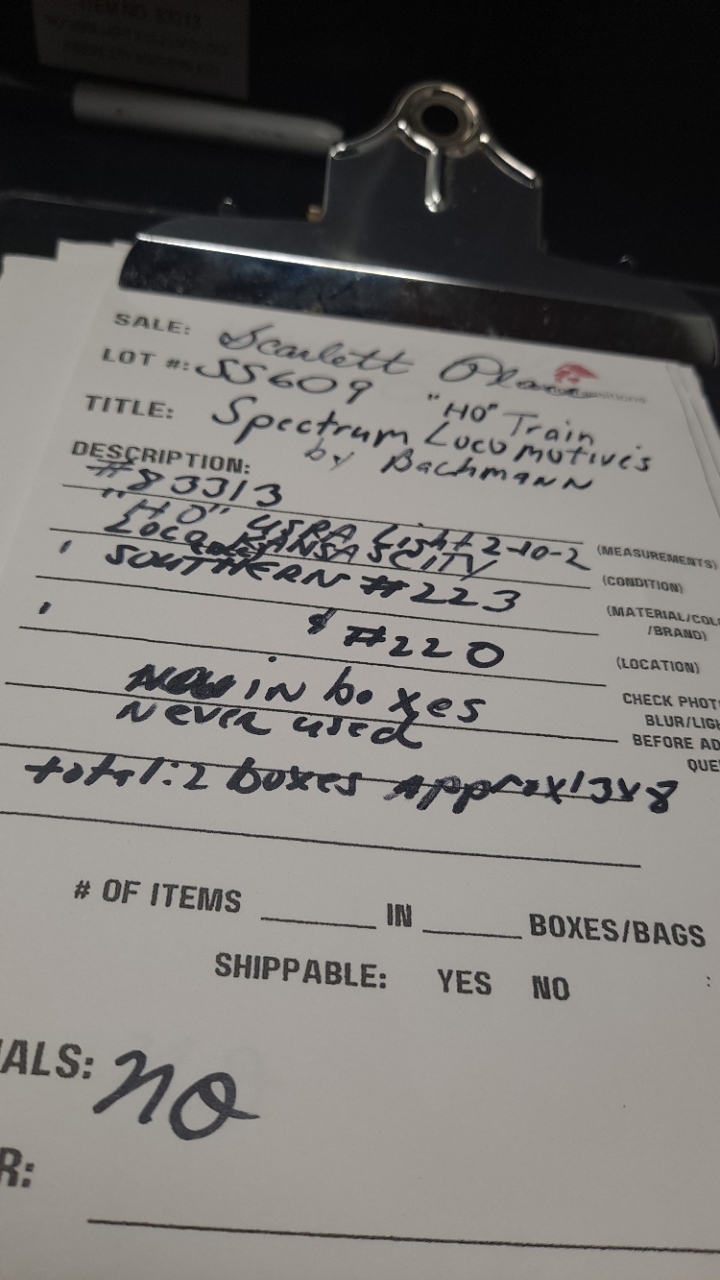 ITEM NO. 83313
SALE: Scarlett
LOT #: SS609
"HO" Train
TITLE: Spectrum Locomotives
by Bachmann
DESCRIPTION:
#83313
"HO" USRA Light 2-10-2 (MEASUREMENTS)
Loco KANSAS CITY (CONDITION)
SOUTHERN #223 (MATERIAL/COL
/BRAND)
#220 (LOCATION)
in boxes CHECK PHOT
never used BLUR/LIG
BEFORE AD
QUE
total: 2 boxes Approx 13x8
# OF ITEMS IN BOXES/BAGS
SHIPPABLE: YES NO
IALS: no
R: